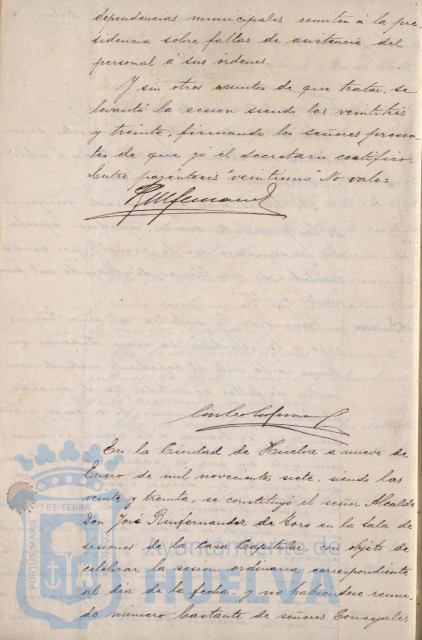 dependencias municipales remiten á la pre-
sidencia sobre faltas de asistencia del
personal á sus órdenes.
Y sin otros asuntos de que tratar, se
levantó la sesion siendo las veintitrés
y treinta, firmando los señores presen-
tes de que yó el Secretario certifico.
Entre paréntesis "veintiuno" No vale=
En la Ciudad de Huelva a nueve de
Enero de mil novecientos siete, siendo las
veinte y treinta, se constituyó el señor Alcalde
Don José Ruifernandez de Toro en la sala de
sesiones de la Casa Capitular, con objeto de
celebrar la sesion ordinaria correspondiente
al dia de la fecha, y no habiendose reuni-
do número bastante de señores Concejales
PORTUS MARIS
ET TERRAE
Ayuntamiento de
HUELVA